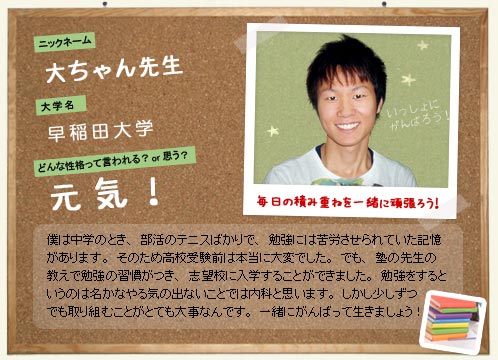 ニックネーム
大ちゃん先生
大学名
早稲田大学
どんな性格って言われる? or 思う?
元気!
いっしょに
がんばろう!
毎日の積み重ねを一緒に頑張ろう!
僕は中学のとき、部活のテニスばかりで、勉強には苦労させられていた記憶
があります。そのため高校受験前は本当に大変でした。でも、塾の先生の
教えで勉強の習慣がつき、志望校に入学することができました。勉強をすると
いうのは名かなやる気の出ないことでは内科と思います。しかし少しずつ
でも取り組むことがとても大事なんです。一緒にがんばって生きましょう!